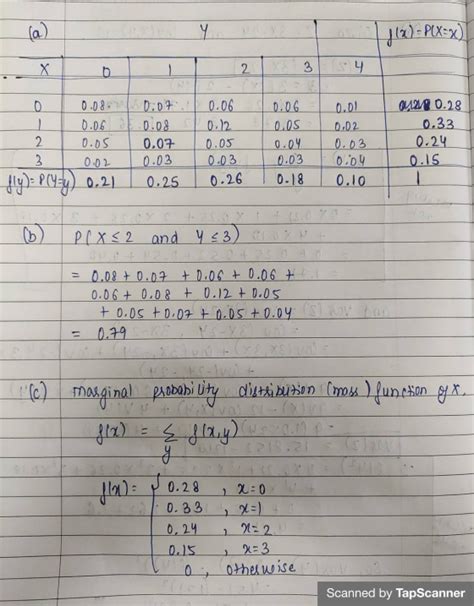 (a) Y f(x)=P(X=x)
X 0 1 2 3 4
0 0.08 0.07 0.06 0.06 0.01 0.28
1 0.06 0.08 0.12 0.05 0.02 0.33
2 0.05 0.07 0.05 0.04 0.03 0.24
3 0.02 0.03 0.03 0.03 0.04 0.15
f(y)=P(Y=y) 0.21 0.25 0.26 0.18 0.10 1
(b) P(X≤2 and Y≤3)
= 0.08+0.07 +0.06+0.06+
0.06+0.08 + 0.12+0.05
+0.05+0.07+0.05+0.04
= 0.79
(c) marginal probability distribution (mass) function of x.
f(x) = Σ f(x,y)
y
f(x)= { 0.28 , x=0
0.33 , x=1
0.24 , x=2
0.15 , x=3
0 , otherwise
Scanned by TapScanner